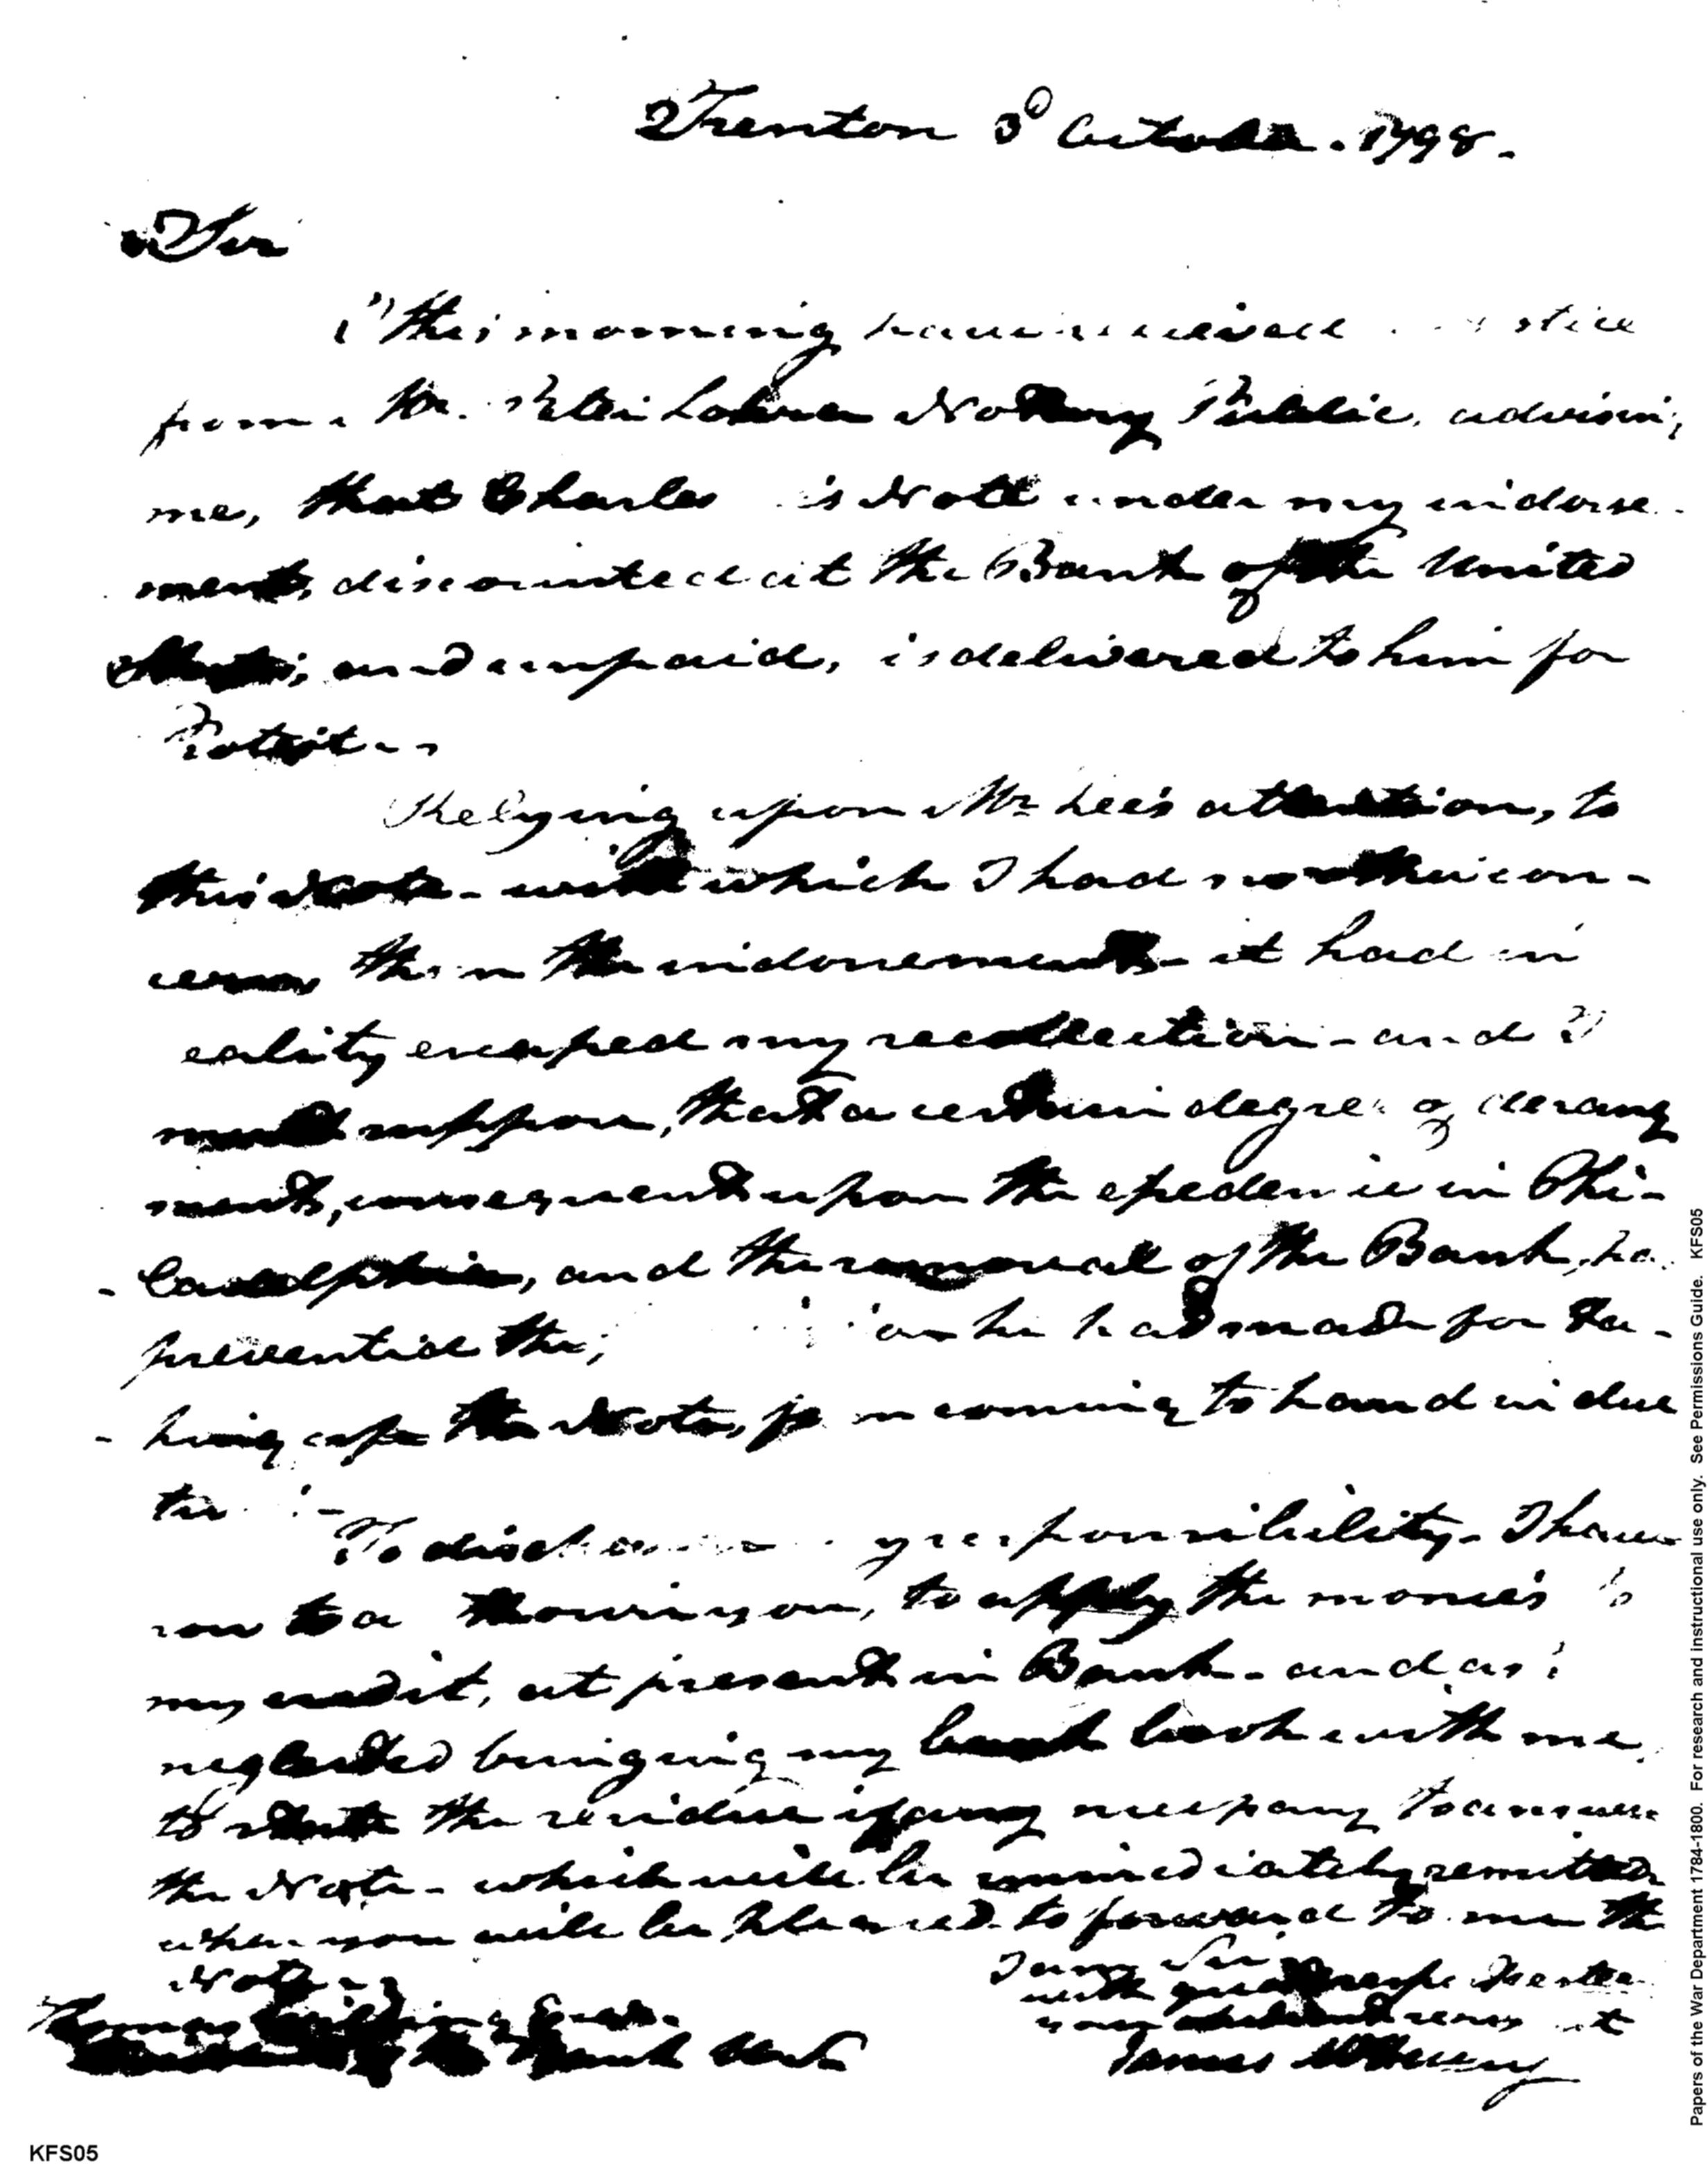 Trenton 3d October. 1798.
Sir
I this morning have received
from Mr. Peter Lohra Notary Public, advising
me, that Charles Note under my indorse-
ment, discounted at the Bank of the United
States; and unpaid, is delivered to him for
Protest
Relying upon Mr Lee's attention, to
this Note - with which I had no other con-
cern, than the indorsement - it had in
reality escaped my recollection - and I
must suppose, that a certain degree of derange
ment, consequent upon the epedemic in Phi-
- ladelphia, and the removal of the Bank, has
prevented the he had made for ta-
- king up the Note, from coming to hand in due
time -
To discharge my responsibility - I have
now to authorise you, to apply the monies to
my credit, at present in Bank - and as I
neglected bringing my bank book with me,
to state the residue if any necessary to answer
the Note - which will be immediately remitted
when you will be pleased to forward to me the
Note
I am Sir
with great respect
your obedient servant
James McHenry
Thomas Willing Esqr.
President of the Bank
KFS05
Papers of the War Department 1784-1800. For research and instructional use only. See Permissions Guide. KFS05